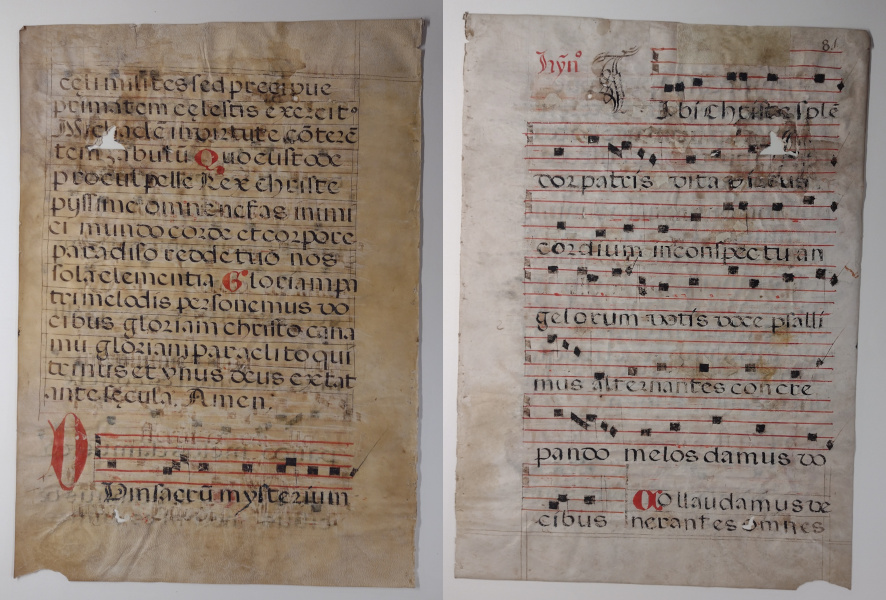 cęli milites sed precipue
primatem cęlestis exercit⁹
Michaelē in virtute cōterē
tem zabulū Quo custode
procul pelle Rex christe
pijssime omne nefas inimi
ci mundo corde et corpore
paradiso redde tuo nos
sola clementia Gloriam pa
tri melodis personemus vo
cibus gloriam christo cana
mus gloriam paraclito qui
trinus et vnus deus extat
ante sęcula. Amen:
Dum sacrū mysterium
81
Hȳn⁹
Tibi christe splē
dor patris vita virtus
cordium in conspectu an
gelorum votis voce psalli
mus alternantes concre
pando melos damus vo
cibus
Collaudamus ve
nerantes omnes